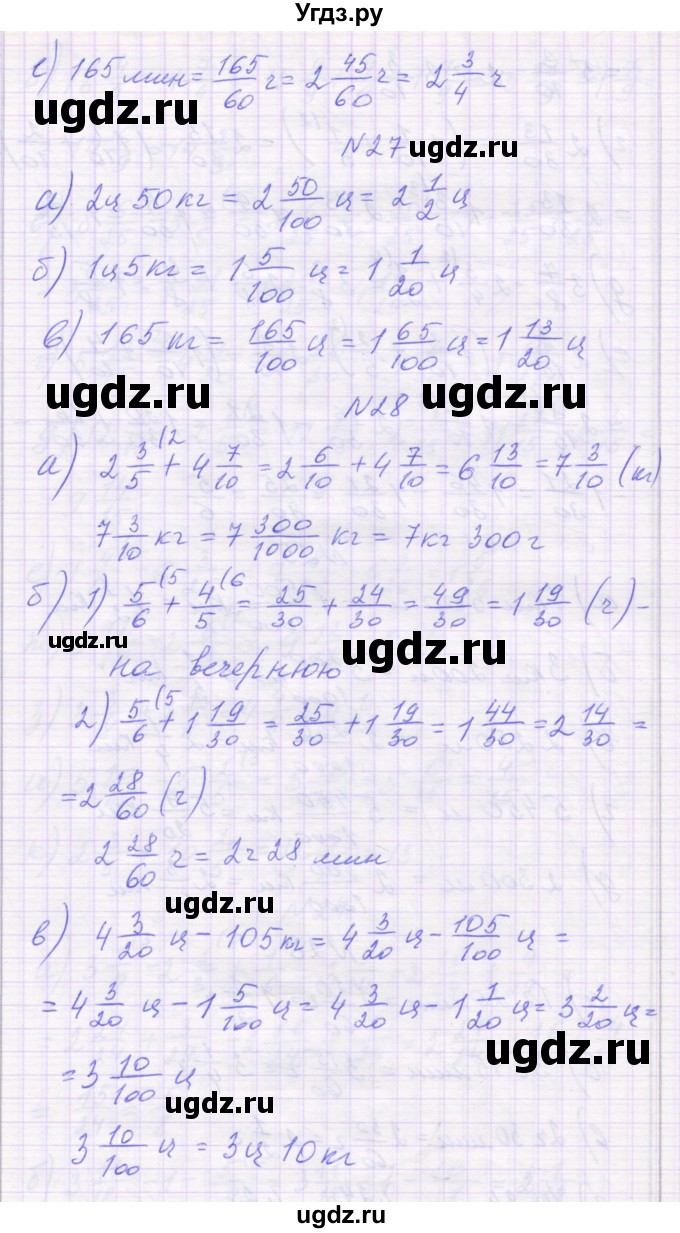 Угдз.ру
е) 165 мин = 165/60 ч = 2 45/60 ч = 2 3/4 ч
ugdz.ru
ugdz.ru
N27
а) 2ц 50кг = 2 50/100 ц = 2 1/2 ц
б) 1ц 5кг = 1 5/100 ц = 1 1/20 ц
в) 165 кг = 165/100 ц = 1 65/100 ц = 1 13/20 ц
ugdz.ru
ugdz.ru
N28
а) 2 3/5 (2 + 4 7/10 = 2 6/10 + 4 7/10 = 6 13/10 = 7 3/10 (кг)
7 3/10 кг = 7 300/1000 кг = 7кг 300г
б) 1) 5/6 (5 + 4/5 (6 = 25/30 + 24/30 = 49/30 = 1 19/30 (ч) -
ugdz.ru
ugdz.ru
на вечернюю
2) 5/6 (5 + 1 19/30 = 25/30 + 1 19/30 = 1 44/30 = 2 14/30 =
= 2 28/60 (ч)
2 28/60 ч = 2ч 28 мин
ugdz.ru
в) 4 3/20 ц - 105кг = 4 3/20 ц - 105/100 ц =
= 4 3/20 ц - 1 5/100 ц = 4 3/20 ц - 1 1/20 ц = 3 2/20 ц =
ugdz.ru
= 3 10/100 ц
ugdz.ru
3 10/100 ц = 3ц 10кг
ugdz.ru